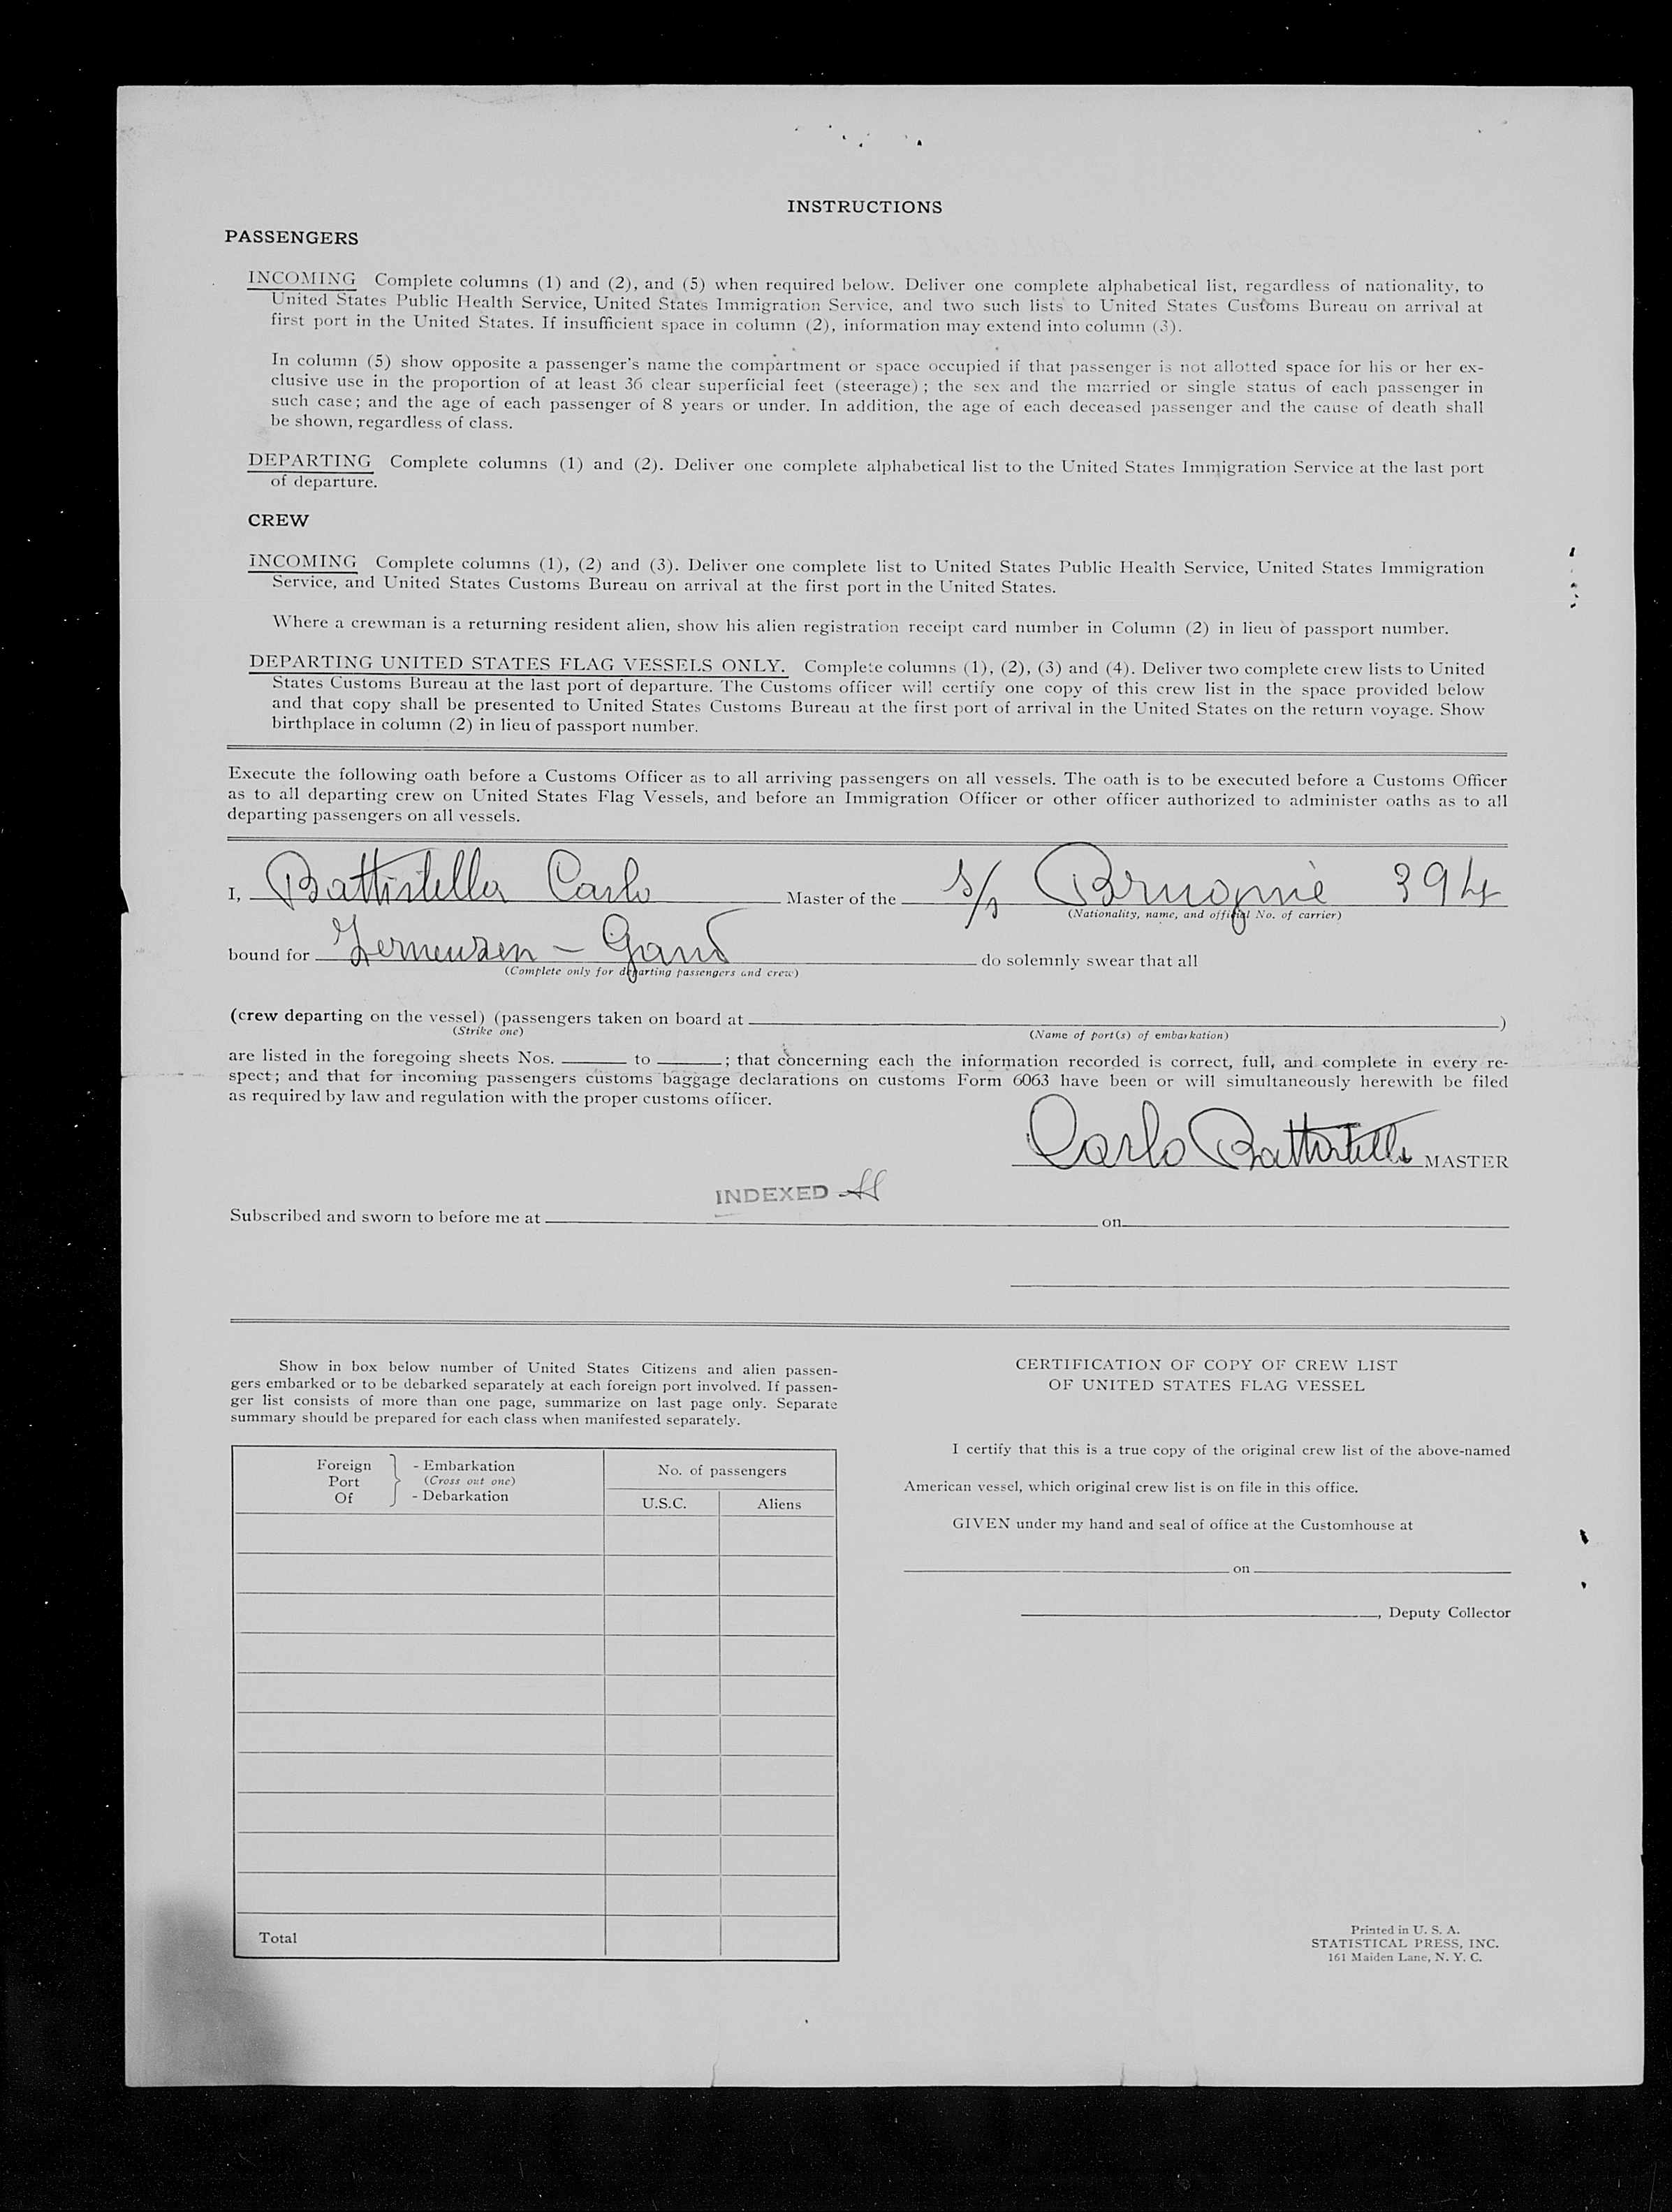 INSTRUCTIONS
PASSENGERS
INCOMING Complete columns (1) and (2), and (5) when required below. Deliver one complete alphabetical list, regardless of nationality, to
United States Public Health Service, United States Immigration Service, and two such lists to United States Customs Bureau on arrival at
first port in the United States. If insufficient space in column (2), information may extend into column (3).
In column (5) show opposite a passenger's name the compartment or space occupied if that passenger is not allotted space for his or her ex-
clusive use in the proportion of at least 36 clear superficial feet (steerage); the sex and the married or single status of each passenger in
such case; and the age of each passenger of 8 years or under. In addition, the age of each deceased passenger and the cause of death shall
be shown, regardless of class.
DEPARTING Complete columns (1) and (2). Deliver one complete alphabetical list to the United States Immigration Service at the last port
of departure.
CREW
INCOMING Complete columns (1), (2) and (3). Deliver one complete list to United States Public Health Service, United States Immigration
Service, and United States Customs Bureau on arrival at the first port in the United States.
Where a crewman is a returning resident alien, show his alien registration receipt card number in Column (2) in lieu of passport number.
DEPARTING UNITED STATES FLAG VESSELS ONLY. Complete columns (1), (2), (3) and (4). Deliver two complete crew lists to United
States Customs Bureau at the last port of departure. The Customs officer will certify one copy of this crew list in the space provided below
and that copy shall be presented to United States Customs Bureau at the first port of arrival in the United States on the return voyage. Show
birthplace in column (2) in lieu of passport number.
Execute the following oath before a Customs Officer as to all arriving passengers on all vessels. The oath is to be executed before a Customs Officer
as to all departing crew on United States Flag Vessels, and before an Immigration Officer or other officer authorized to administer oaths as to all
departing passengers on all vessels.
I, Battistella Carlo Master of the S/s 394
(Nationality, name, and official No. of carrier)
bound for Gand do solemnly swear that all
(Complete only for departing passengers and crew)
(crew departing on the vessel) (passengers taken on board at )
(Strike one) (Name of port(s) of embarkation)
are listed in the foregoing sheets Nos. to ; that concerning each the information recorded is correct, full, and complete in every re-
spect; and that for incoming passengers customs baggage declarations on customs Form 6063 have been or will simultaneously herewith be filed
as required by law and regulation with the proper customs officer.
Carlo Battistella MASTER
INDEXED
Subscribed and sworn to before me at on
Show in box below number of United States Citizens and alien passen-
gers embarked or to be debarked separately at each foreign port involved. If passen-
ger list consists of more than one page, summarize on last page only. Separate
summary should be prepared for each class when manifested separately.
Foreign Port Of } - Embarkation (Cross out one) - Debarkation
No. of passengers
U.S.C. Aliens
Total
CERTIFICATION OF COPY OF CREW LIST
OF UNITED STATES FLAG VESSEL
I certify that this is a true copy of the original crew list of the above-named
American vessel, which original crew list is on file in this office.
GIVEN under my hand and seal of office at the Customhouse at
on
, Deputy Collector
Printed in U. S. A.
STATISTICAL PRESS, INC.
161 Maiden Lane, N. Y. C.